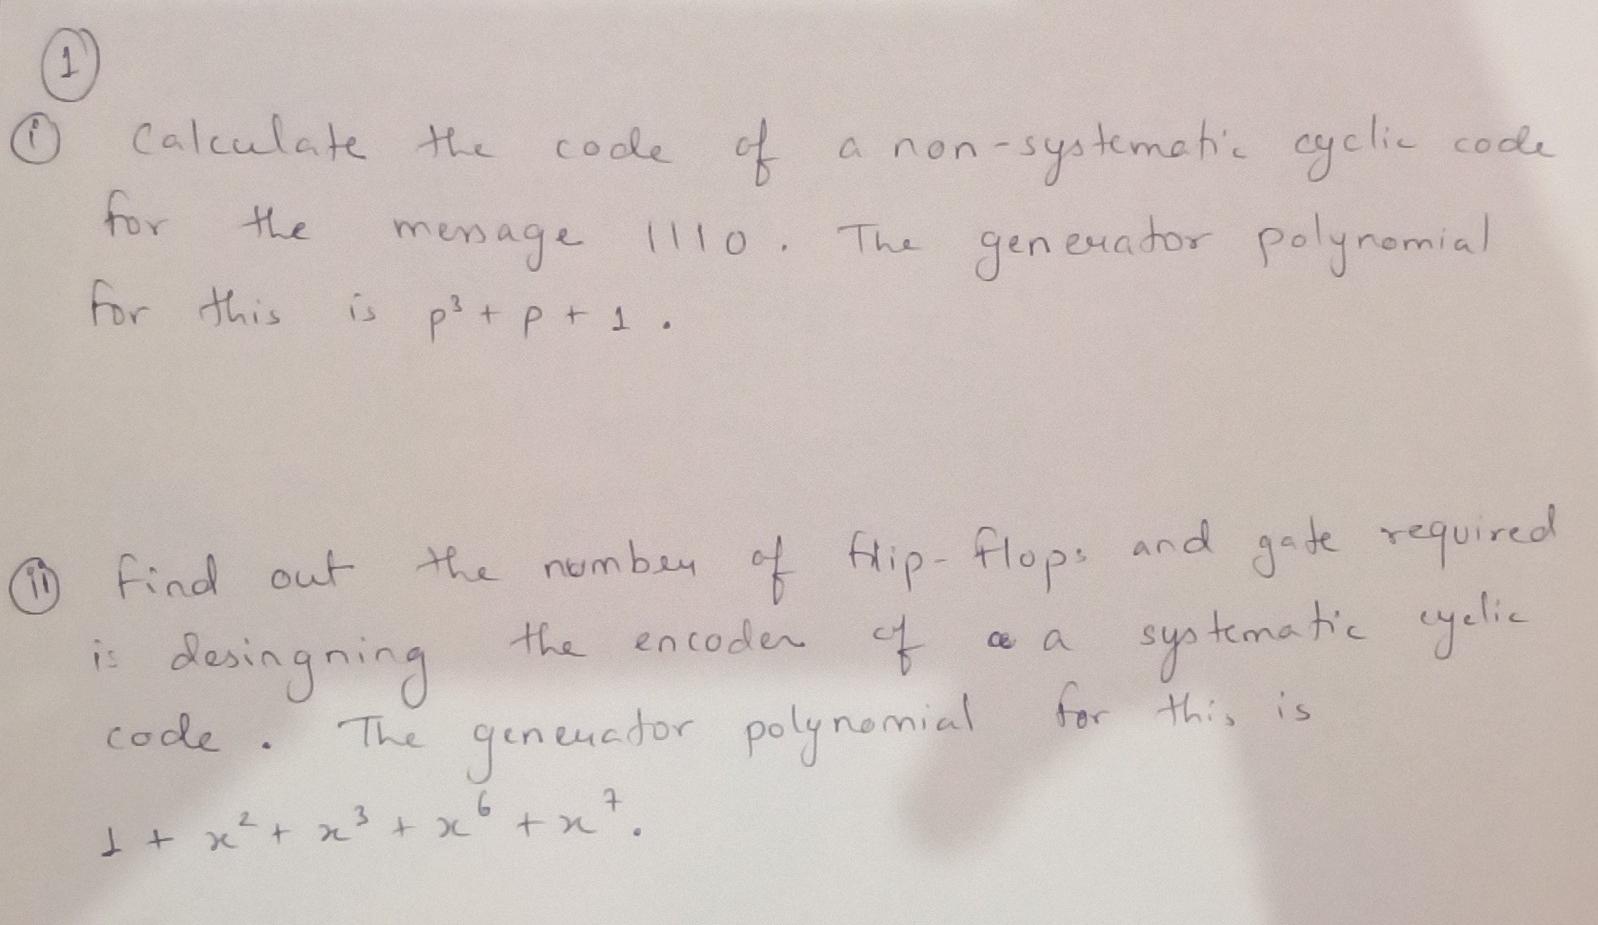 1
i Calculate the code of a non-systematic cyclic code
for the message 1110. The generator polynomial
for this is p³ + p + 1.
ii Find out the number of flip-flops and gate required
is desingning the encoder of a systematic cyclic
code. The generator polynomial for this is
1 + x² + x³ + x⁶ + x⁷.